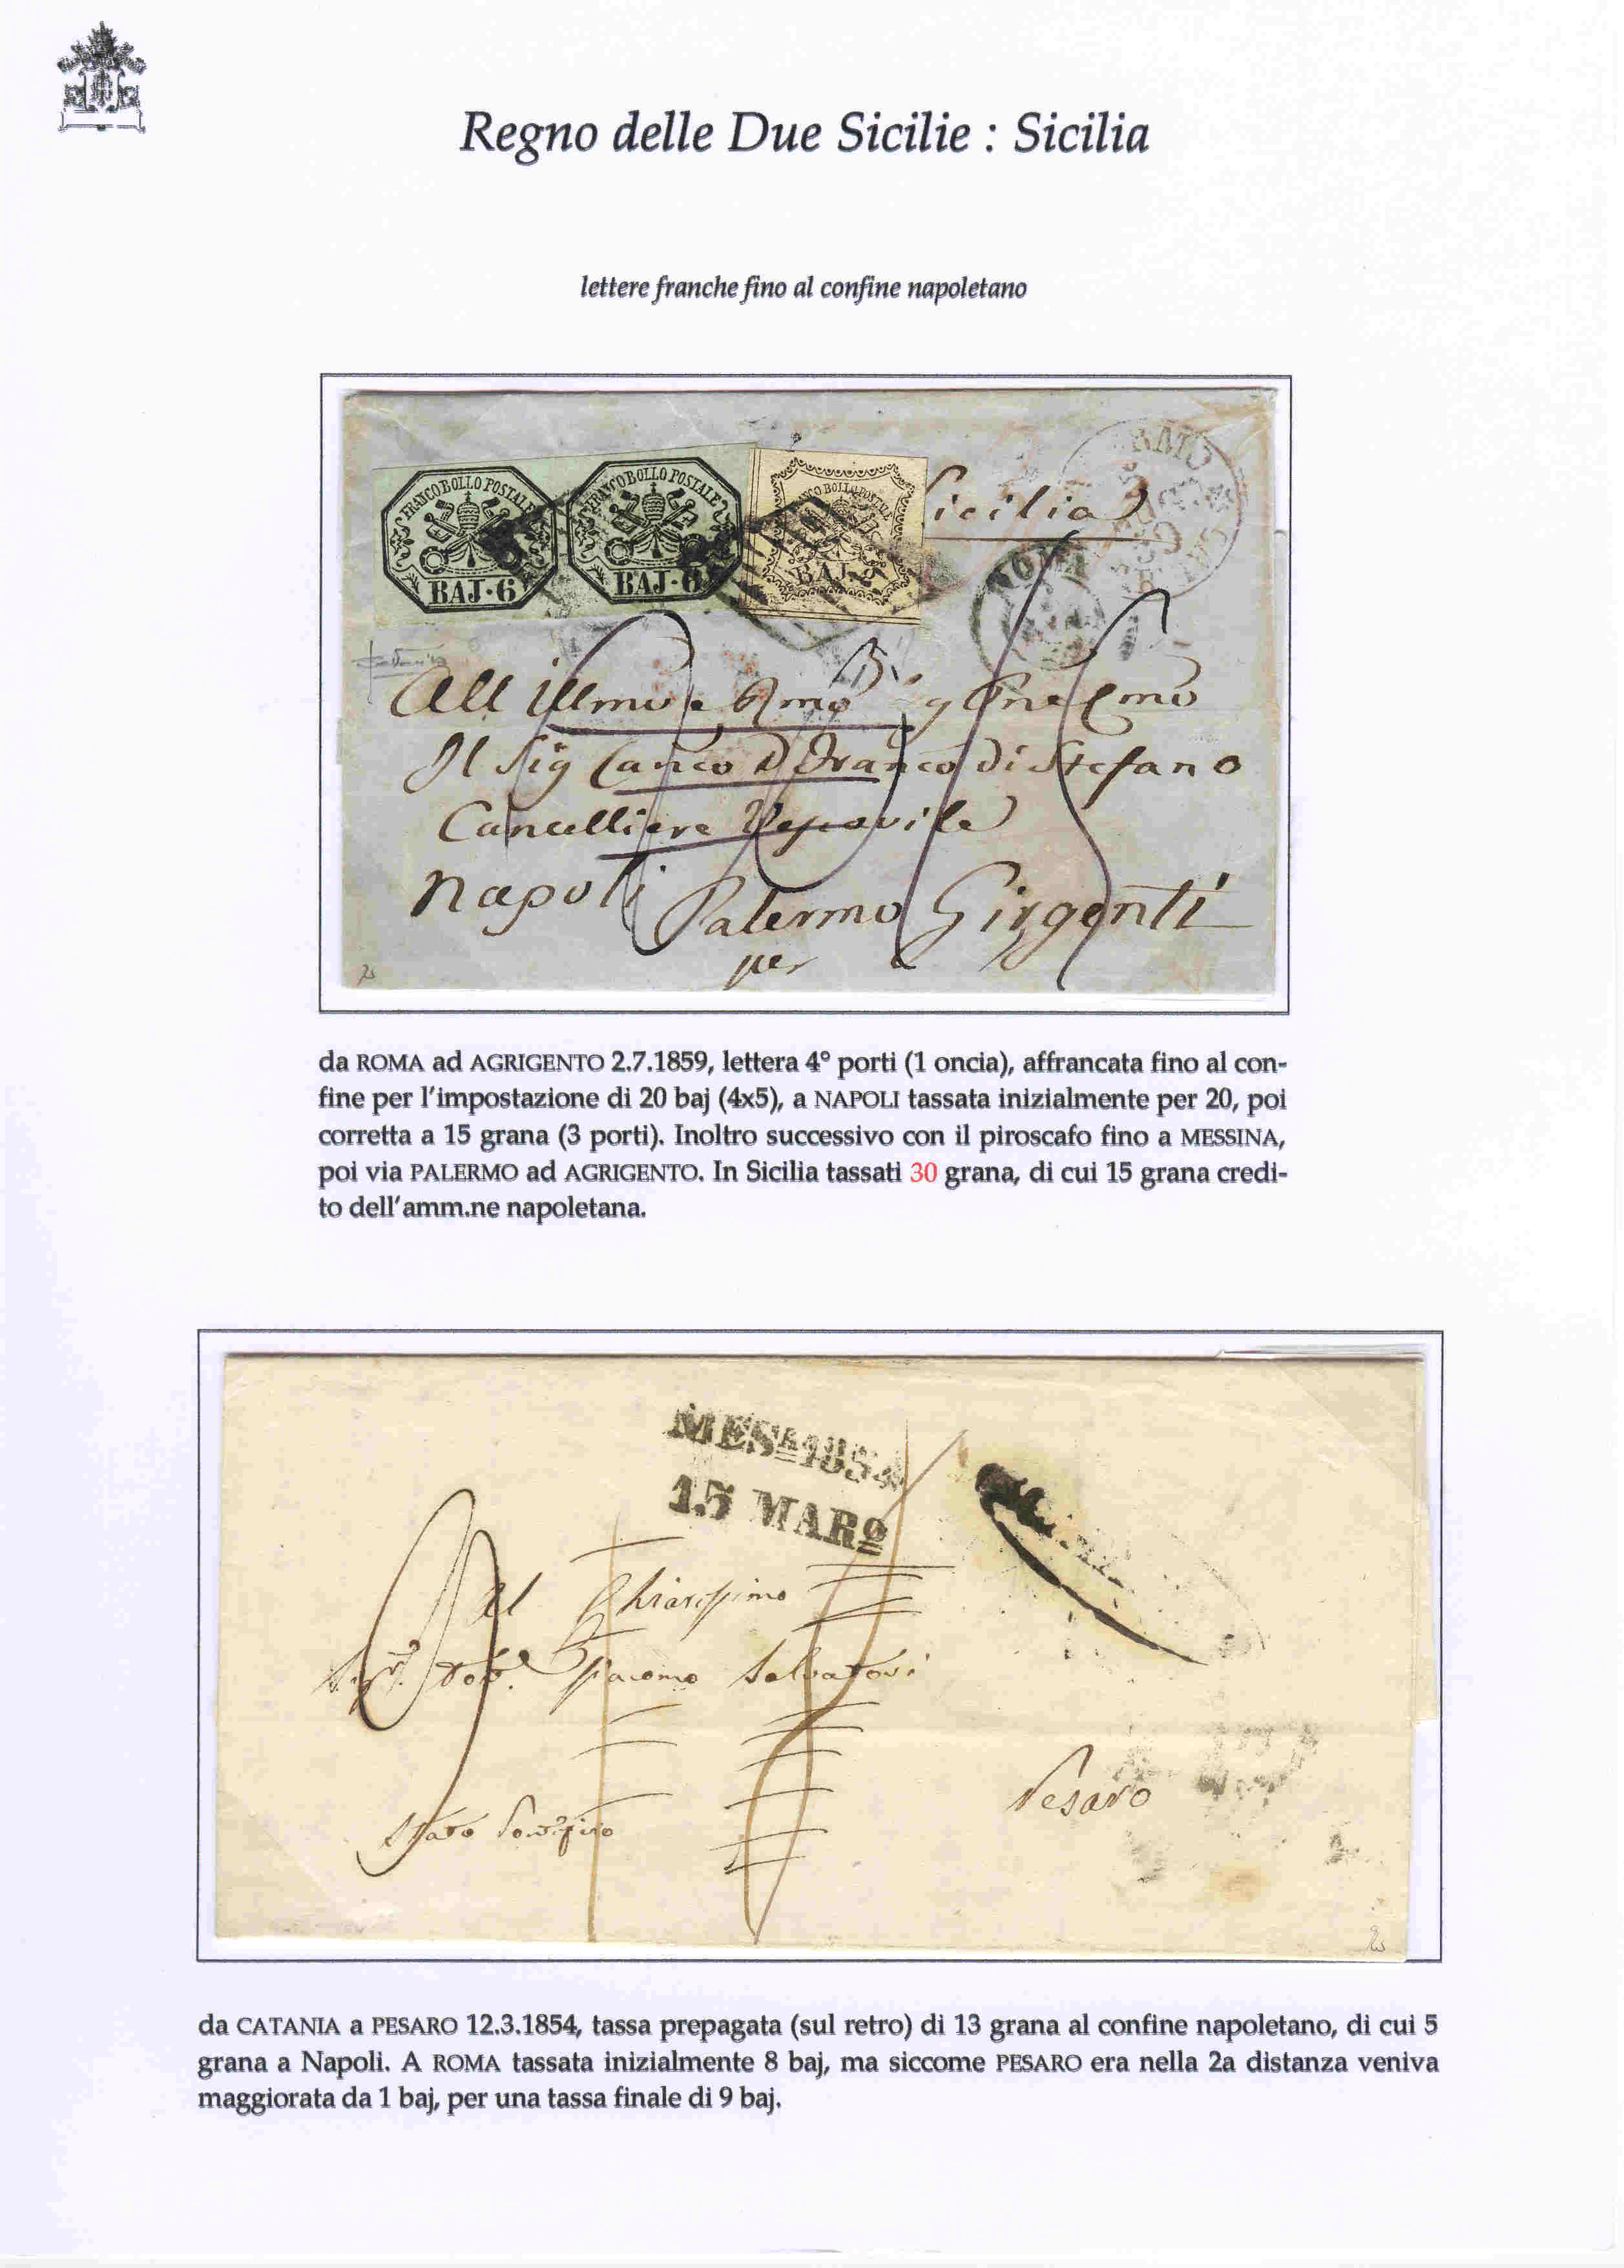 Regno delle Due Sicilie : Sicilia
lettere franche fino al confine napoletano
FRANCO BOLLO POSTALE
BAJ·6
FRANCO BOLLO POSTALE
BAJ·6
FRANCO BOLLO POSTALE
BAJ·2
Sicilia
ROMA
All Illmo e Rmo
Il Sig Canco D Franco di Stefano
Cancelliere Vescovile
Napoli Palermo Girgenti
per
da ROMA ad AGRIGENTO 2.7.1859, lettera 4° porti (1 oncia), affrancata fino al con-
fine per l'impostazione di 20 baj (4x5), a NAPOLI tassata inizialmente per 20, poi
corretta a 15 grana (3 porti). Inoltro successivo con il piroscafo fino a MESSINA,
poi via PALERMO ad AGRIGENTO. In Sicilia tassati 30 grana, di cui 15 grana credi-
to dell'amm.ne napoletana.
MESA 1854
15 MARO
Al Chiarissimo
Sigr. Dotr. Giacomo Salvatori
Pesaro
Stato Pontificio
da CATANIA a PESARO 12.3.1854, tassa prepagata (sul retro) di 13 grana al confine napoletano, di cui 5
grana a Napoli. A ROMA tassata inizialmente 8 baj, ma siccome PESARO era nella 2a distanza veniva
maggiorata da 1 baj, per una tassa finale di 9 baj.